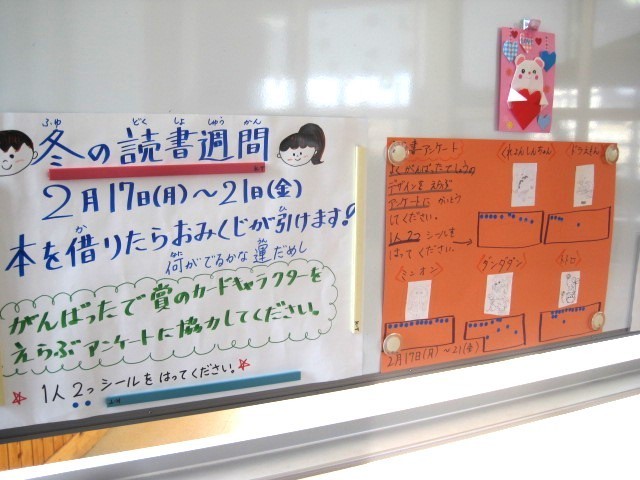 ふゆ どく しょ しゅう かん
冬の読書週間
2月17日(月)～21日(金)
本を借りたらおみくじが引けます!
何がでるかな 運だめし
がんばったで賞のカードキャラクターを
えらぶアンケートに協力してください。
1人2つシールをはってください!
LOVE
アンケート
よくがんばったでしょうの
デザインをえらぶ
アンケートに
してください。
1人2つシールを
はってください。
くれよんしんちゃん
ドラえもん
ミニオン
ダンダダン
2月17日(月)～21(金)